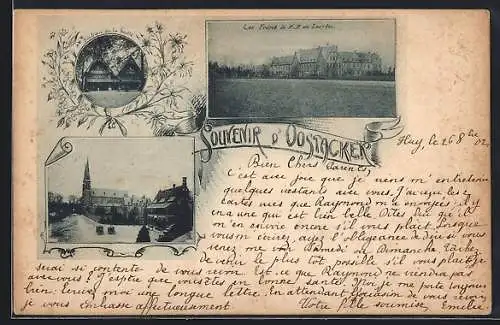 Les Frères de N.D. de Lourdes
SOUVENIR D'OOSTACKER
Huy, le 26 8bre 02
Bien Chers Parents,
C'est avec joie que je viens m'entretenir
quelques instants avec vous. J'ai reçu les
cartes vues que Raymond m'a envoyées il y
en a une qui est bien belle Dites lui qu'il
m'en envoie encore s'il vous plaît. Lorsque
vous m'écrirez, ayez l'obligeance de dire si vous
venez me voir Samedi ou Dimanche tâchez
de venir le plus tôt possible s'il vous plaît. Je
serai si contente de vous revoir. Est-ce que Raymond ne viendra pas
avec vous? J'espère que vous êtes en bonne santé. Moi je me porte toujours
bien. Ecrivez moi une longue lettre. En attendant l'occasion de vous revoir,
je vous embrasse affectueusement Votre fille soumise Emilie